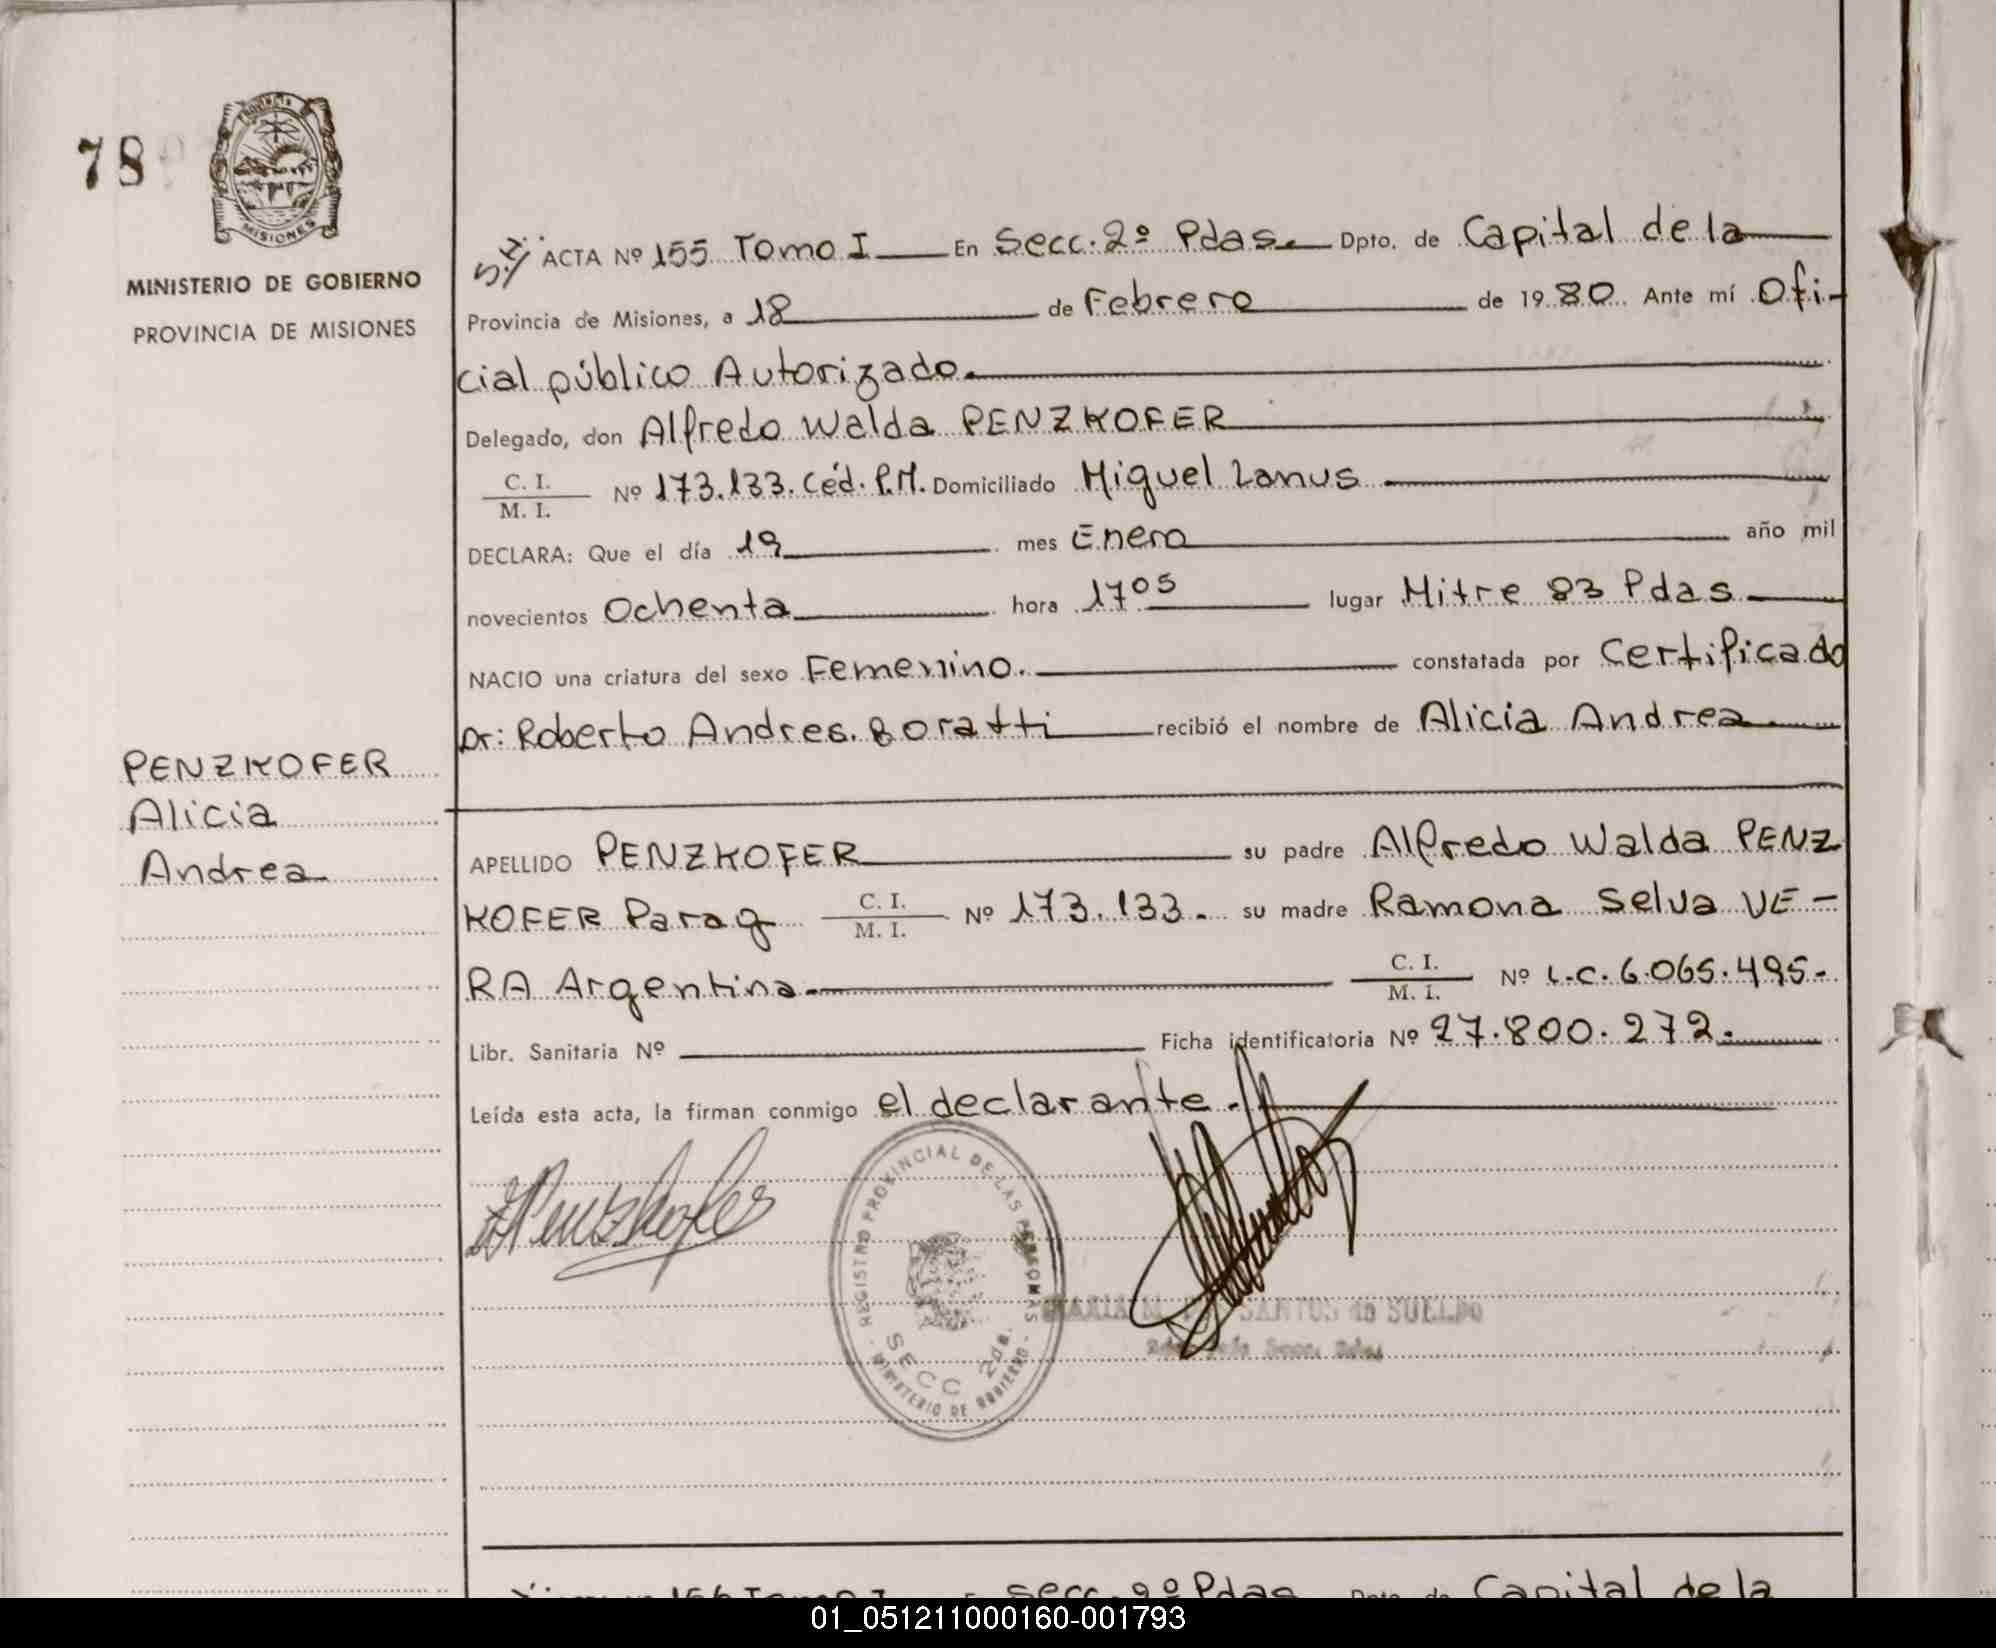 78
PROVINCIA
MISIONES
MINISTERIO DE GOBIERNO
PROVINCIA DE MISIONES
PENZKOFER
Alicia
Andrea
ACTA Nº 155 Tomo I En Secc. 2º Pdas. Dpto. de Capital de la
Provincia de Misiones, a 18 de Febrero de 19 80. Ante mí Ofi-
cial público Autorizado.
Delegado, don Alfredo Walda PENZKOFER
C. I.
M. I. Nº 173.133. Céd. P.M. Domiciliado Miguel Lanus
DECLARA: Que el día 19 mes Enero año mil
novecientos Ochenta hora 17 05 lugar Mitre 83 Pdas
NACIO una criatura del sexo Femenino. constatada por Certificado
Dr: Roberto Andres. Boratti recibió el nombre de Alicia Andrea
APELLIDO PENZKOFER su padre Alfredo Walda PENZ
KOFER Parag C. I.
M. I. Nº 173.133. su madre Ramona Selva VE-
RA Argentina. C. I.
M. I. Nº L.C. 6.065.495.
Libr. Sanitaria Nº Ficha identificatoria Nº 27.800.272.
Leída esta acta, la firman conmigo el declarante.
Penzkofer
REGISTRO PROVINCIAL DE LAS PERSONAS
SECC 2da.
MINISTERIO DE GOBIERNO
SANTOS de SUELDO
156 Tomo I Secc. 2º Pdas Dpto. de Capital de la
01_051211000160-001793